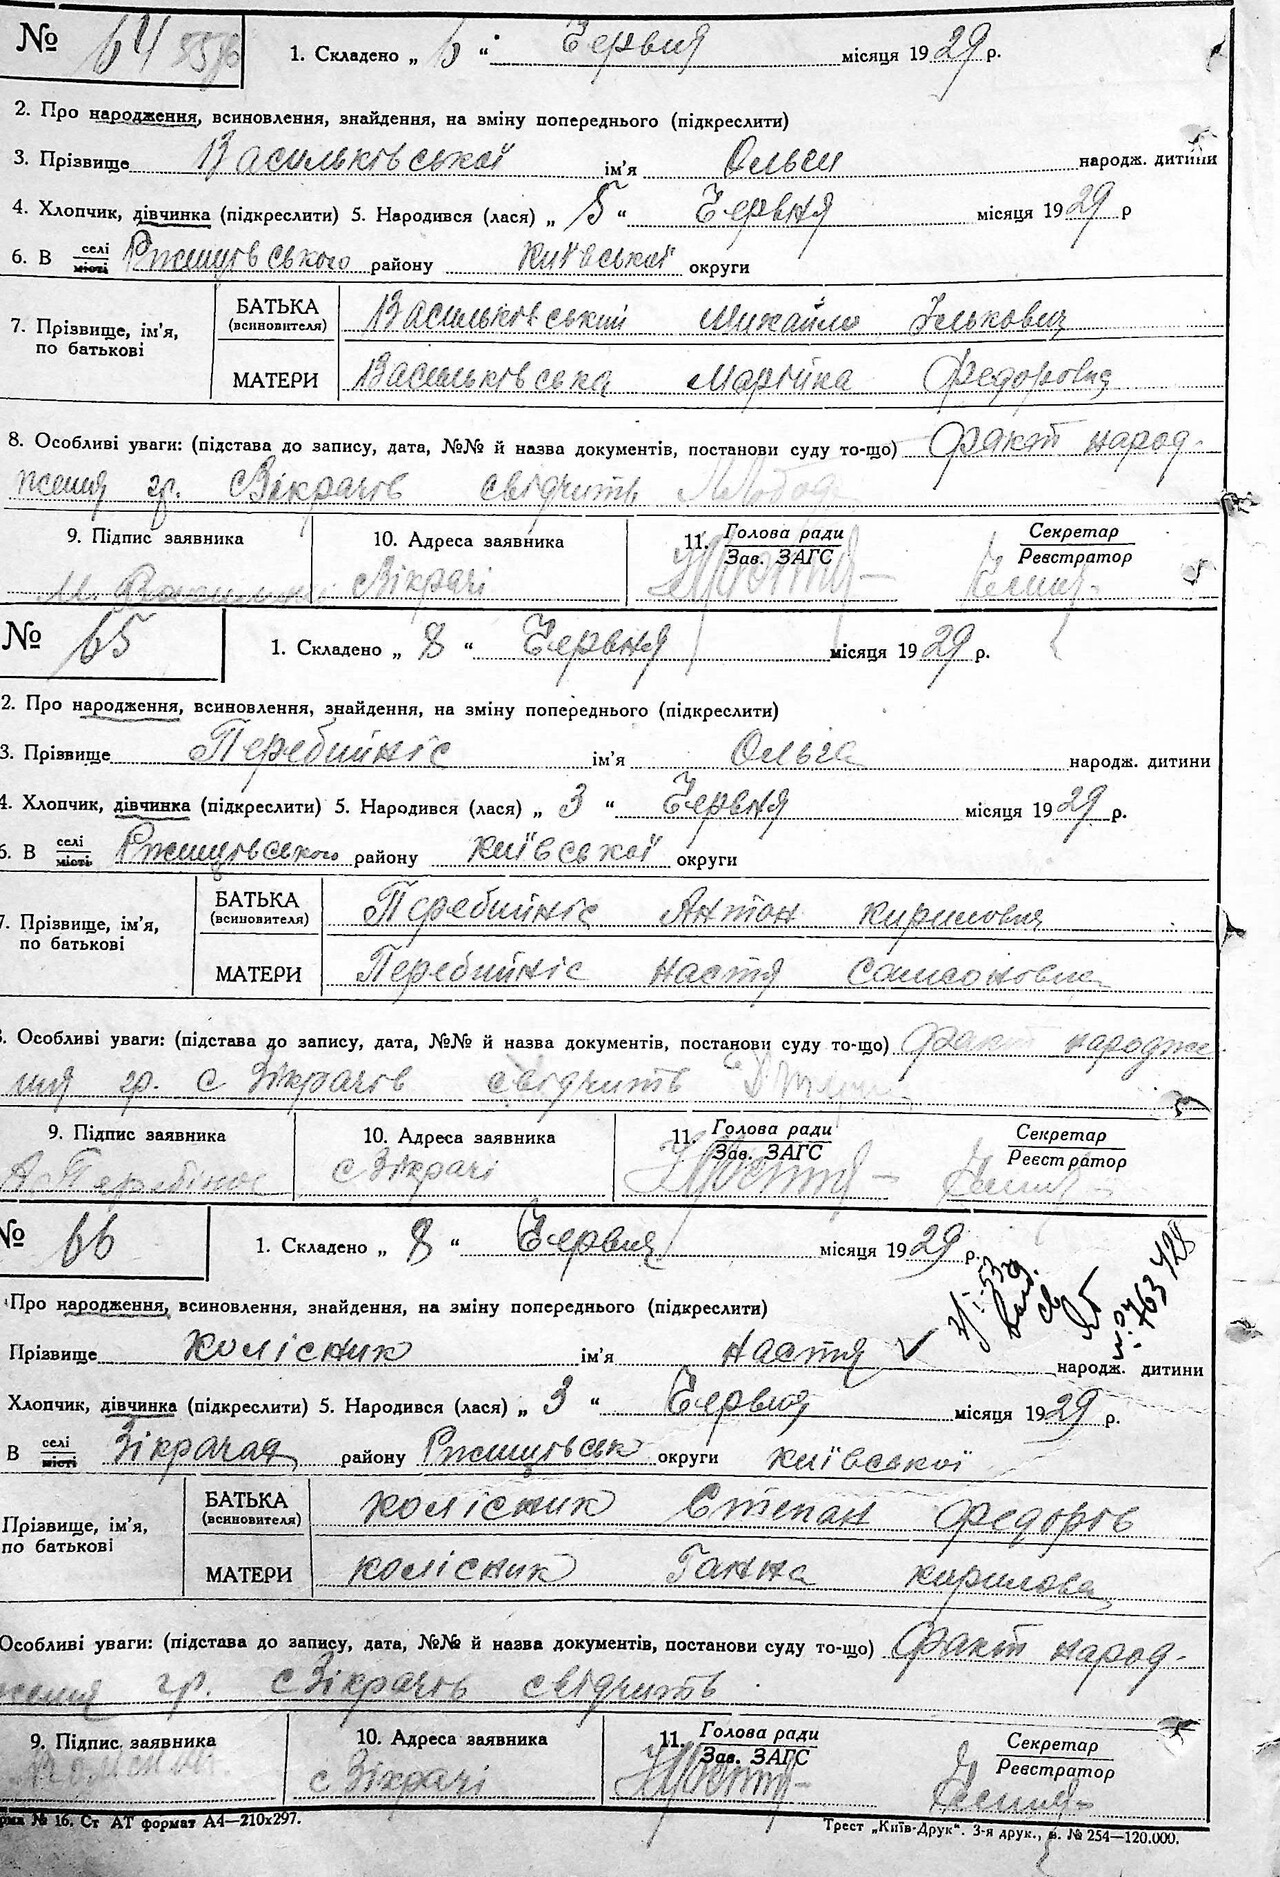 № 64 1. Складено „ 6 “ Червня місяця 1929 р.
2. Про народження, всиновлення, знайдення, на зміну попереднього (підкреслити)
3. Прізвище Васильківської ім'я Ольги народж. дитини
4. Хлопчик, дівчинка (підкреслити) 5. Народився (лася) „ 5 “ Червня місяця 1929 р
6. В селі місті Ржищівського району Київської округи
7. Прізвище, ім'я, по батькові
БАТЬКА (всиновителя) Васильківський Михайло Ількович
МАТЕРИ Васильківська Марійка Федоровна
8. Особливі уваги: (підстава до запису, дата, №№ й назва документів, постанови суду то-що) Факт народ-
ження гр. с Зікрачів свідчить
9. Підпис заявника 10. Адреса заявника 11. Голова ради Зав. ЗАГС Секретар Реєстратор
с Зікрачі
№ 65 1. Складено „ 8 “ Червня місяця 1929 р.
2. Про народження, всиновлення, знайдення, на зміну попереднього (підкреслити)
3. Прізвище Перебийніс ім'я Ольга народж. дитини
4. Хлопчик, дівчинка (підкреслити) 5. Народився (лася) „ 3 “ Червня місяця 1929 р.
6. В селі місті Ржищівського району Київської округи
7. Прізвище, ім'я, по батькові
БАТЬКА (всиновителя) Перебийніс Антон Кирилович
МАТЕРИ Перебийніс Настя Самсоновна
8. Особливі уваги: (підстава до запису, дата, №№ й назва документів, постанови суду то-що) Факт народже-
ння гр. с Зікрачів свідчить
9. Підпис заявника 10. Адреса заявника 11. Голова ради Зав. ЗАГС Секретар Реєстратор
А. Перебінос с Зікрачі
№ 66 1. Складено „ 8 “ Червня місяця 1929 р.
Про народження, всиновлення, знайдення, на зміну попереднього (підкреслити)
Прізвище Колісник ім'я Настя народж. дитини
763728
Хлопчик, дівчинка (підкреслити) 5. Народився (лася) „ 3 “ Червня місяця 1929 р.
В селі місті Зікрачах району Ржищівськ округи Київської
Прізвище, ім'я, по батькові
БАТЬКА (всиновителя) Колісник Степан Федорів
МАТЕРИ Колісник Ганна Кирилова
Особливі уваги: (підстава до запису, дата, №№ й назва документів, постанови суду то-що) Факт народ-
ження гр. с Зікрачів свідчить
9. Підпис заявника 10. Адреса заявника 11. Голова ради Зав. ЗАГС Секретар Реєстратор
с Зікрачі
№ 16. Ст АТ формат А4—210х297. Трест „Київ-Друк“. 3-я друк., в. № 254—120.000.